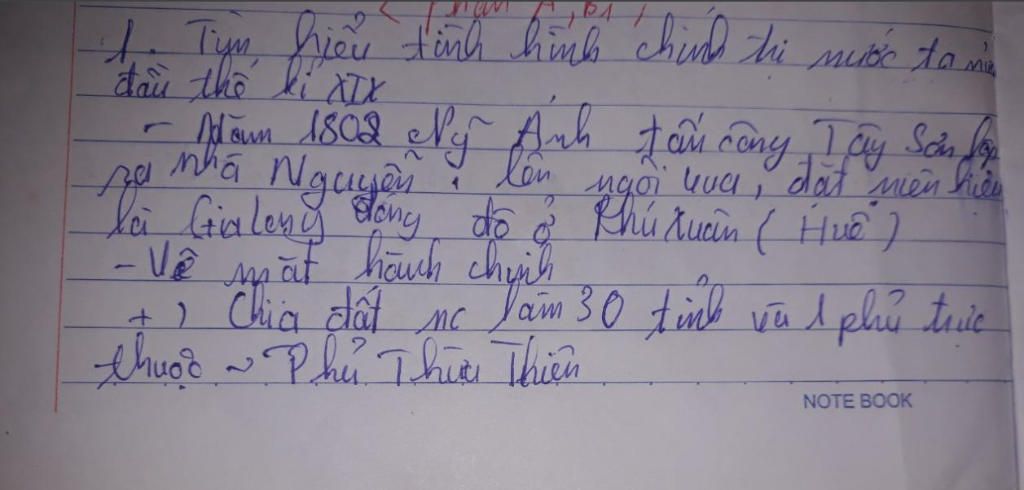 ( Phần A, B1,
1. Tìm hiểu tình hình chính trị nước ta nửa
đầu thế kỉ XIX
- Năm 1802 Ng~ Ánh tấn công Tây Sơn lập
ra nhà Nguyễn. lên ngôi vua, đặt niên hiệu
là Gia Long đóng đô ở Phú Xuân ( Huế )
- Về mặt hành chính
+ ) Chia đất nc làm 30 tỉnh và 1 phủ trực
thuộc ~ Phủ Thừa Thiên
NOTE BOOK